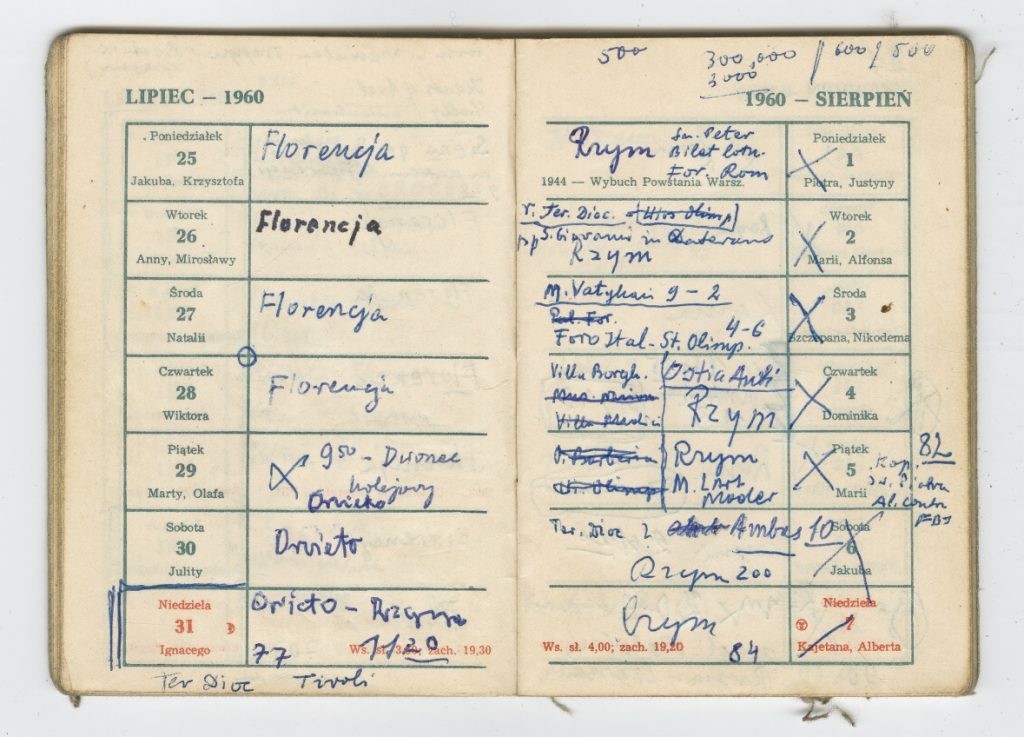 LIPIEC – 1960
Poniedziałek
25
Jakuba, Krzysztofa
Florencja
Wtorek
26
Anny, Mirosławy
Florencja
Środa
27
Natalii
Florencja
Czwartek
28
Wiktora
Florencja
Piątek
29
Marty, Olafa
9⁵⁰ – Dworzec
kolejowy
Orvieto
Sobota
30
Julity
Orvieto
Niedziela
31
Ignacego
Orvieto – Rzym
77
Ws. sł. 3,50; zach. 19,30
Ter Dioc Tivoli
500
300,000
3000
600 / 500
1960 – SIERPIEŃ
Rzym
Św. Peter
Bilet lotn.
For. Rom
1944 — Wybuch Powstania Warsz.
Poniedziałek
1
Piotra, Justyny
Ter. Dioc.
S. Giovanni in Laterano
Rzym
Wtorek
2
Marii, Alfonsa
M. Vatykan 9 – 2
Pal. For.
Foro Ital – St. Olimp. 4–6
Środa
3
Szczepana, Nikodema
Villa Borgh.
Ostia Anti
Villa Medici
Rzym
Czwartek
4
Dominika
P. Barberini
Rzym
M. L'Art
Moder
Piątek
5
Marii
82
Kop.
Św. Piotra
Ter. Dioc ?
Ambas 10
Rzym 200
Sobota
6
Jakuba
Rzym
84
Ws. sł. 4,00; zach. 19,20
Niedziela
7
Kajetana, Alberta